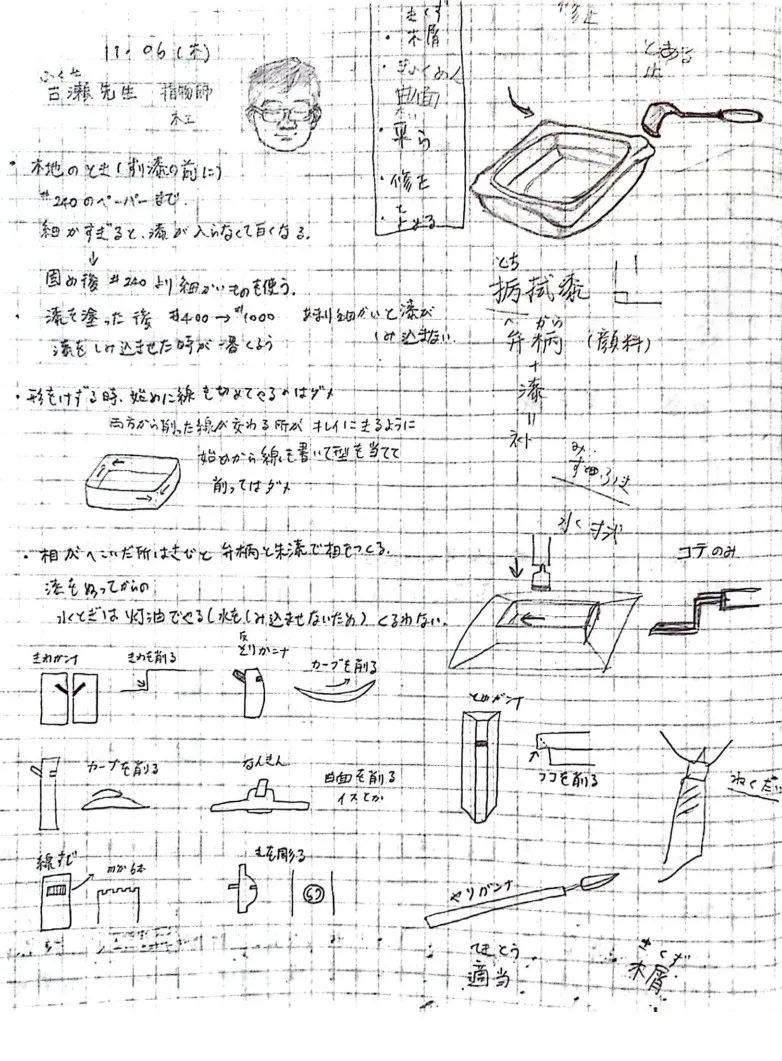 11.06(木)
古瀬先生 指物師
木工
・木地のとぎ(削漆の前に)
#240のペーパーまで.
細かすぎると、漆が入らなくて白くなる.
↓
固め後 #240より細かいものを使う.
・漆を塗った後 #400→#1000 あまり細かいと漆が
しみ込まない.
漆をしみ込ませた時が
・形をけずる時、始めに線を決めてやるのはダメ
両方から削った線が交わる所がキレイにきるように
始めから線を書いて型を当てて
削ってはダメ
・相がへこいだ所はさびと弁柄と朱漆で相をつくる.
漆をぬってからの
水とぎは灯油でやる(水をしみ込ませないため) くるわない.
きわガンナ
きわを削る
反
そりガンナ
カーブを削る
カーブを削る
なんきん
曲面を削る
イスとか
線すじ
丸を彫る
きくず
・木屑
・きょくめん
曲面
・平ら
・修正
・止める
修正
とめる
止
とち
拭漆
べんがら
弁柄 (顔料)
+
漆
=
コテのみ
とめガンナ
ココを削る
ヤリガンナ
てきとう
適当
きくず
木屑